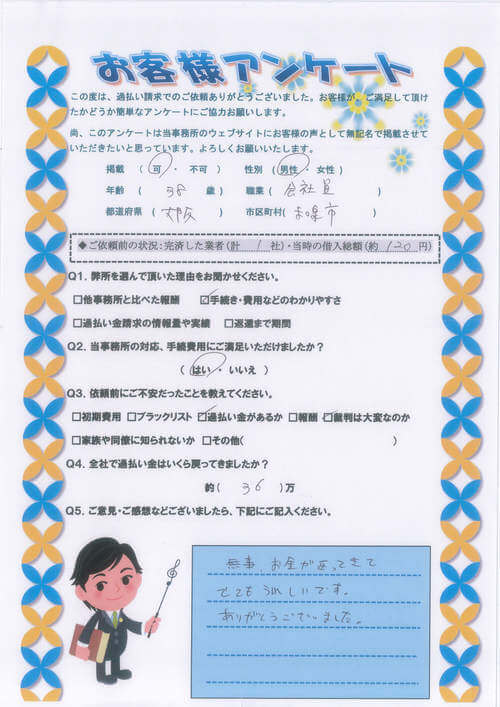 お客様アンケート
この度は、過払い請求でのご依頼ありがとうございました。お客様が、ご満足して頂け
たかどうか簡単なアンケートにご協力お願いします。
尚、このアンケートは当事務所のウェブサイトにお客様の声として無記名で掲載させて
いただきたいと思っています。よろしくお願いいたします。
掲載 ( 可 ・ 不可 ) 性別 ( 男性 ・ 女性 )
年齢 ( 38 歳 ) 職業 ( 会社員 )
都道府県 ( 大阪 ) 市区町村( 市 )
◆ご依頼前の状況:完済した業者(計 1 社)・当時の借入総額(約 120 円)
Q1. 弊所を選んで頂いた理由をお聞かせください。
□他事務所と比べた報酬 ☑手続き・費用などのわかりやすさ
□過払い金請求の情報量や実績 □返還まで期間
Q2. 当事務所の対応、手続費用にご満足いただけましたか?
( はい ・ いいえ )
Q3. 依頼前にご不安だったことを教えてください。
□初期費用 □ブラックリスト ☑過払い金があるか □報酬 □裁判は大変なのか
□家族や同僚に知られないか □その他( )
Q4. 全社で過払い金はいくら戻ってきましたか?
約( 36 )万
Q5. ご意見・ご感想などございましたら、下記にご記入ください。
無事、お金がもどってきて
とてもうれしいです。
ありがとうございました。